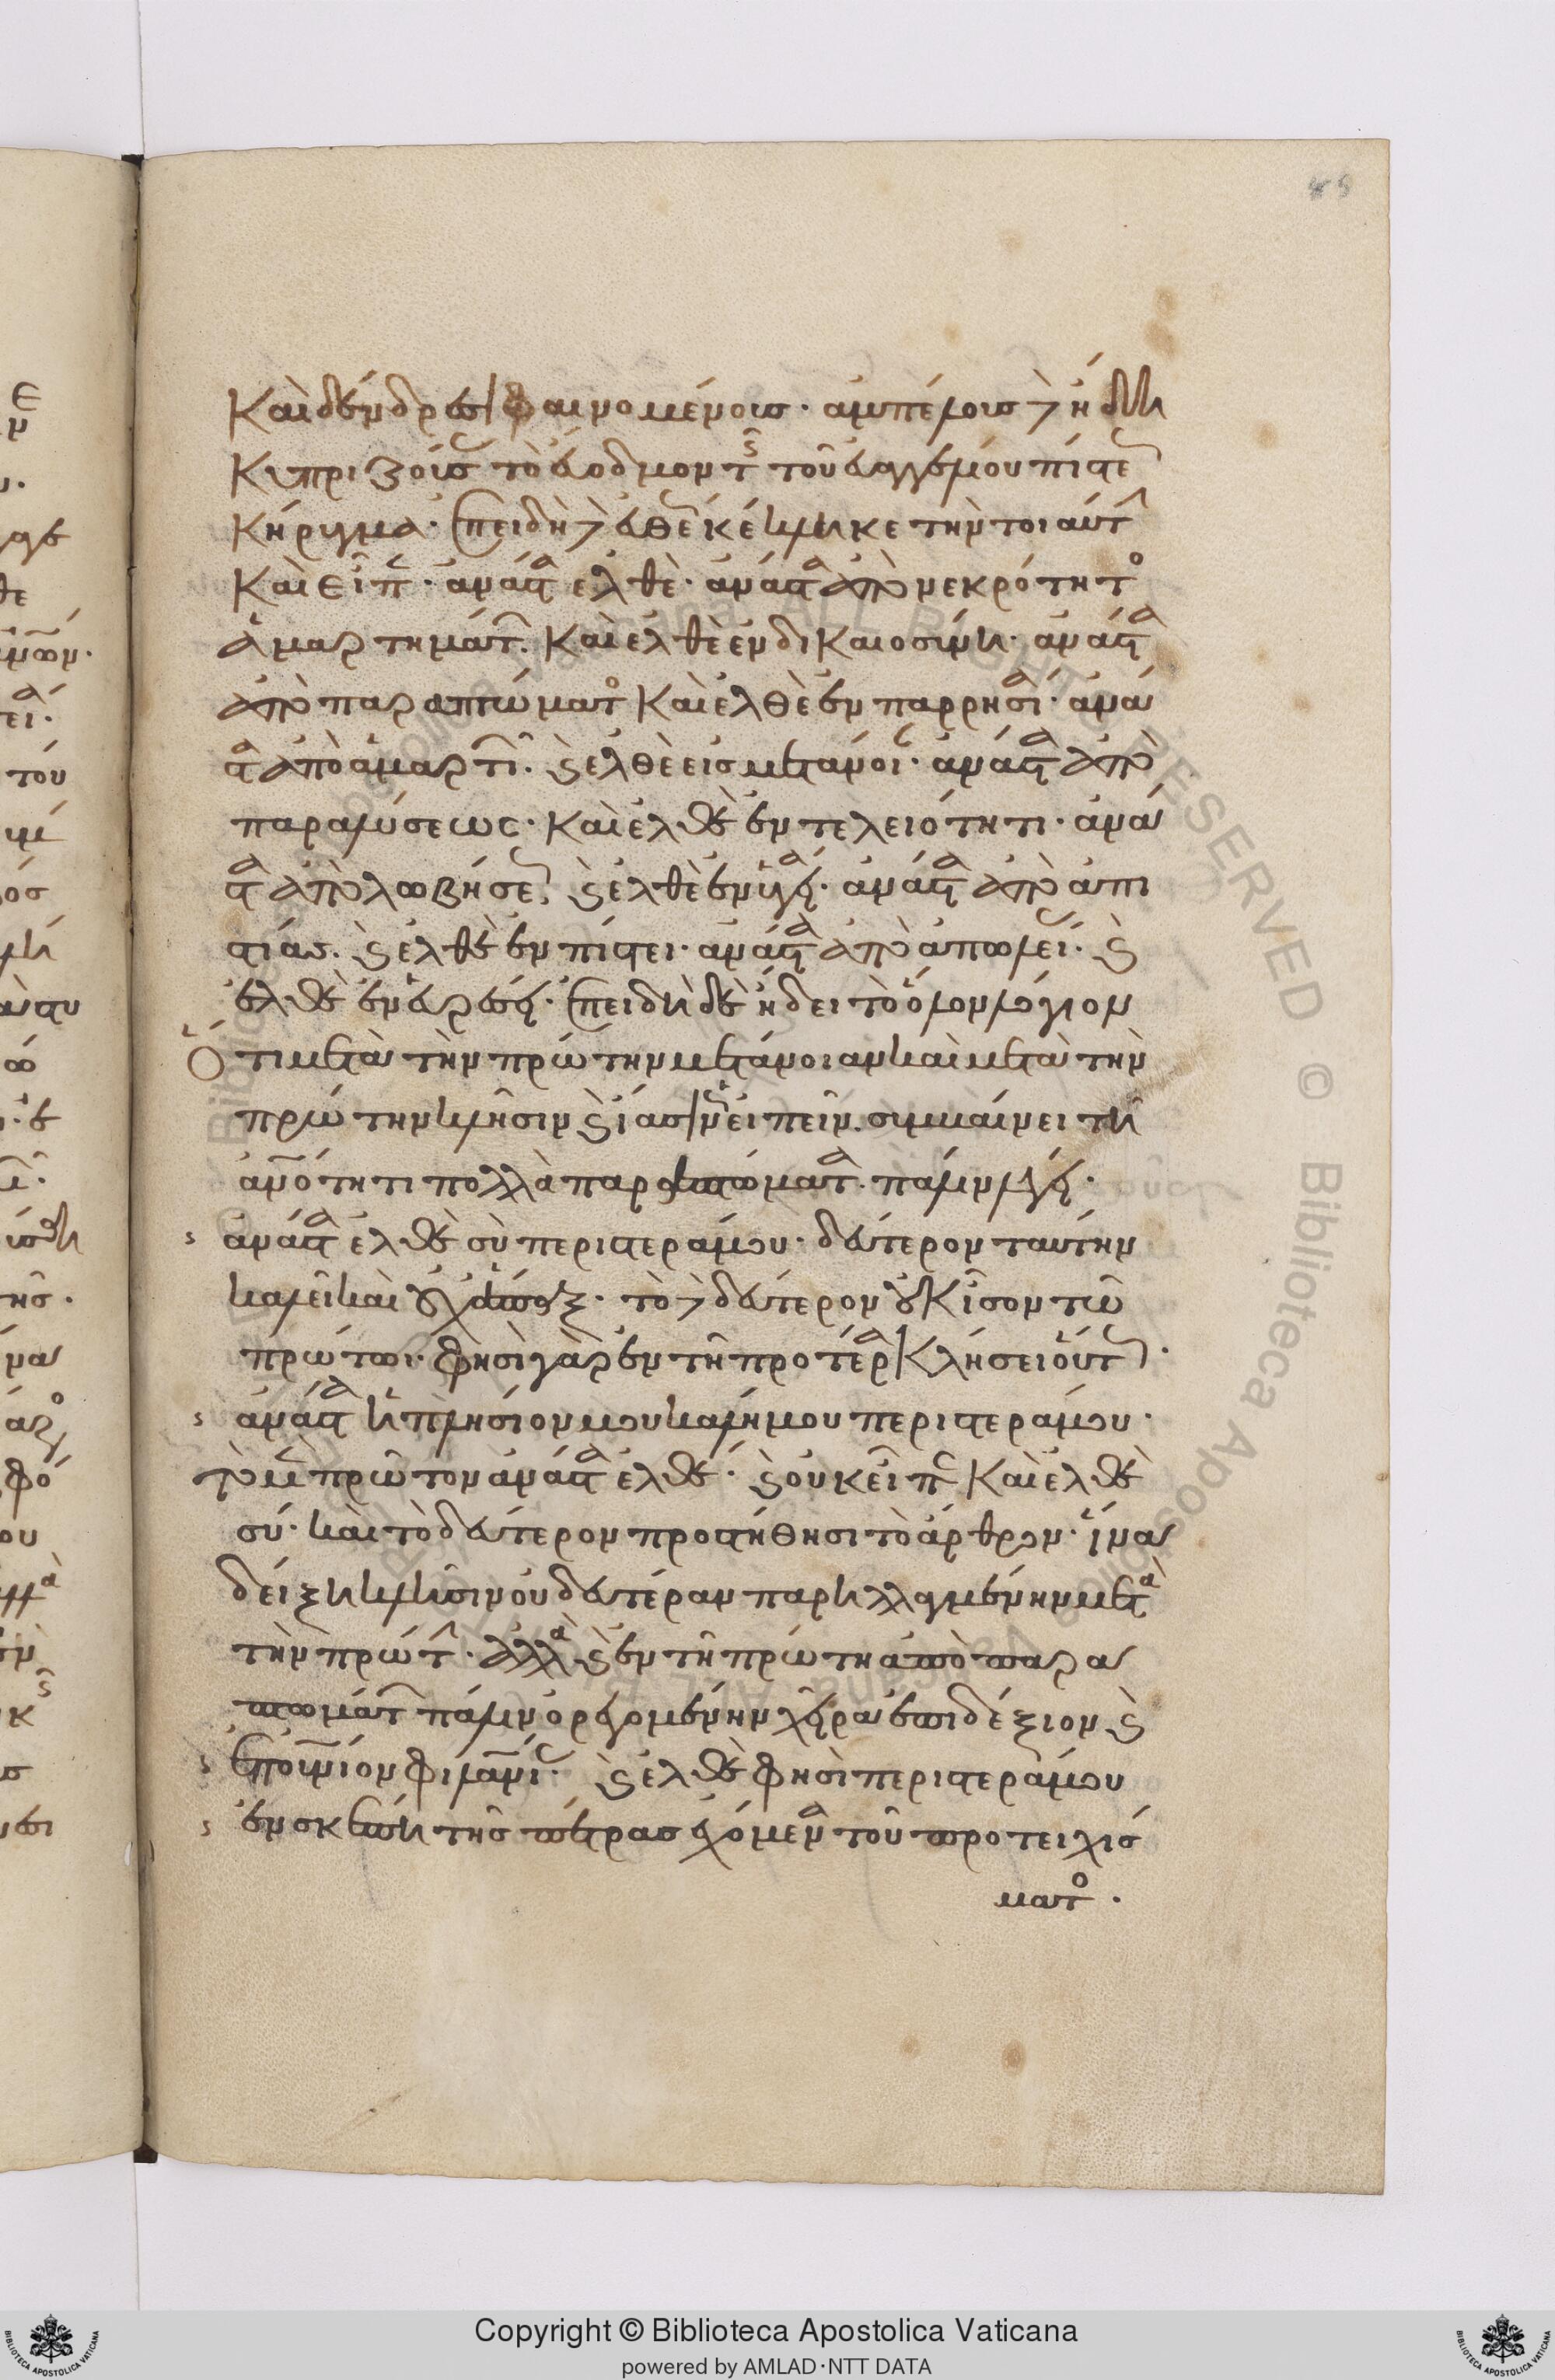 Καὶ δένδρεσι φαινομένοις· ἀμπέλοις δὲ ἤδη
Κυπριζούσ τὸ εὔοδμον τ τοῦ εὐαγγελίου πίστε
Κήρυγμα· ἐπειδὴ δὲ εὐθὺ κέκληκε τὴν τοιαύτ
Καὶ εἶπ· ἀνάστα ἐλθὲ· ἀνάστα ἀπὸ νεκρότητο
ἁμαρτημάτ. Καὶ ἐλθὲ ἐν δικαιοσύνη· ἀνάστα
ἀπὸ παραπτώματο Καὶ ἐλθὲ ἐν παρρησία· ἀνά
στα ἀπὸ ἁμαρτι. καὶ ἐλθὲ εἰς μετάνοι· ἀνάστα ἀπὸ
παραλύσεως· Καὶ ἐλθὲ ἐν τελειότητι· ἀνά
στα ἀπὸ λωβήσε, καὶ ἐλθὲ ἐν ὑγεία· ἀνάστα ἀπὸ ἀπι
στίας. καὶ ἐλθὲ ἐν πίστει· ἀνάστα ἀπὸ ἀπωλεί. καὶ
ἐλθὲ ἐν εὑρέσει· ἐπειδὴ δὲ ἤδει τὸ ὅλον λόγιον
Ὅτι μετὰ τὴν πρώτην μετάνοιαν καὶ μετὰ τὴν
πρώτην κλῆσιν καὶ ἴασιν εἰπεῖν. συμβαίνει τῆ
ἀνότητι πολλὰ παραπτώματα. πάλιν λέγει·
ἀνάστα ἐλθὲ σὺ περιστερά μου· δεύτερον ταύτην
καλεῖ καὶ οὐχ ἅπαξ· τὸ δὲ δεύτερον οὐκ ἶσον τῶ
πρώτωι· φησὶ γὰρ ἐν τῆ προτέρα Κλήσει οὕτ·
ἀνάστα ἡ πλησίον μου καλή μου περιστερά μου·
τὸ μὲν πρῶτον ἀνάστα ἐλθέ· καὶ οὐκ εἶπ Καὶ ἐλθὲ
σύ· καὶ τὸ δεύτερον προστήθησι τὸ ἄρθρον· ἵνα
δείξη κλῆσιν οὐ δευτέραν παρηλλαγμένην μετὰ
τὴν πρώτ· ἀλλὰ καὶ ἐν τῆ πρώτη ἀπὸ παρα
πτωμάτ πάλιν ὀρεγομένην χεῖρα ἐπιδέξιον καὶ
ἐποίνιον φιλανι· καὶ ἐλθὲ φησὶ περιστερά μου
ἐν σκέπη τῆς πέτρας ἐχόμενα τοῦ προτειχίσ
ματο·